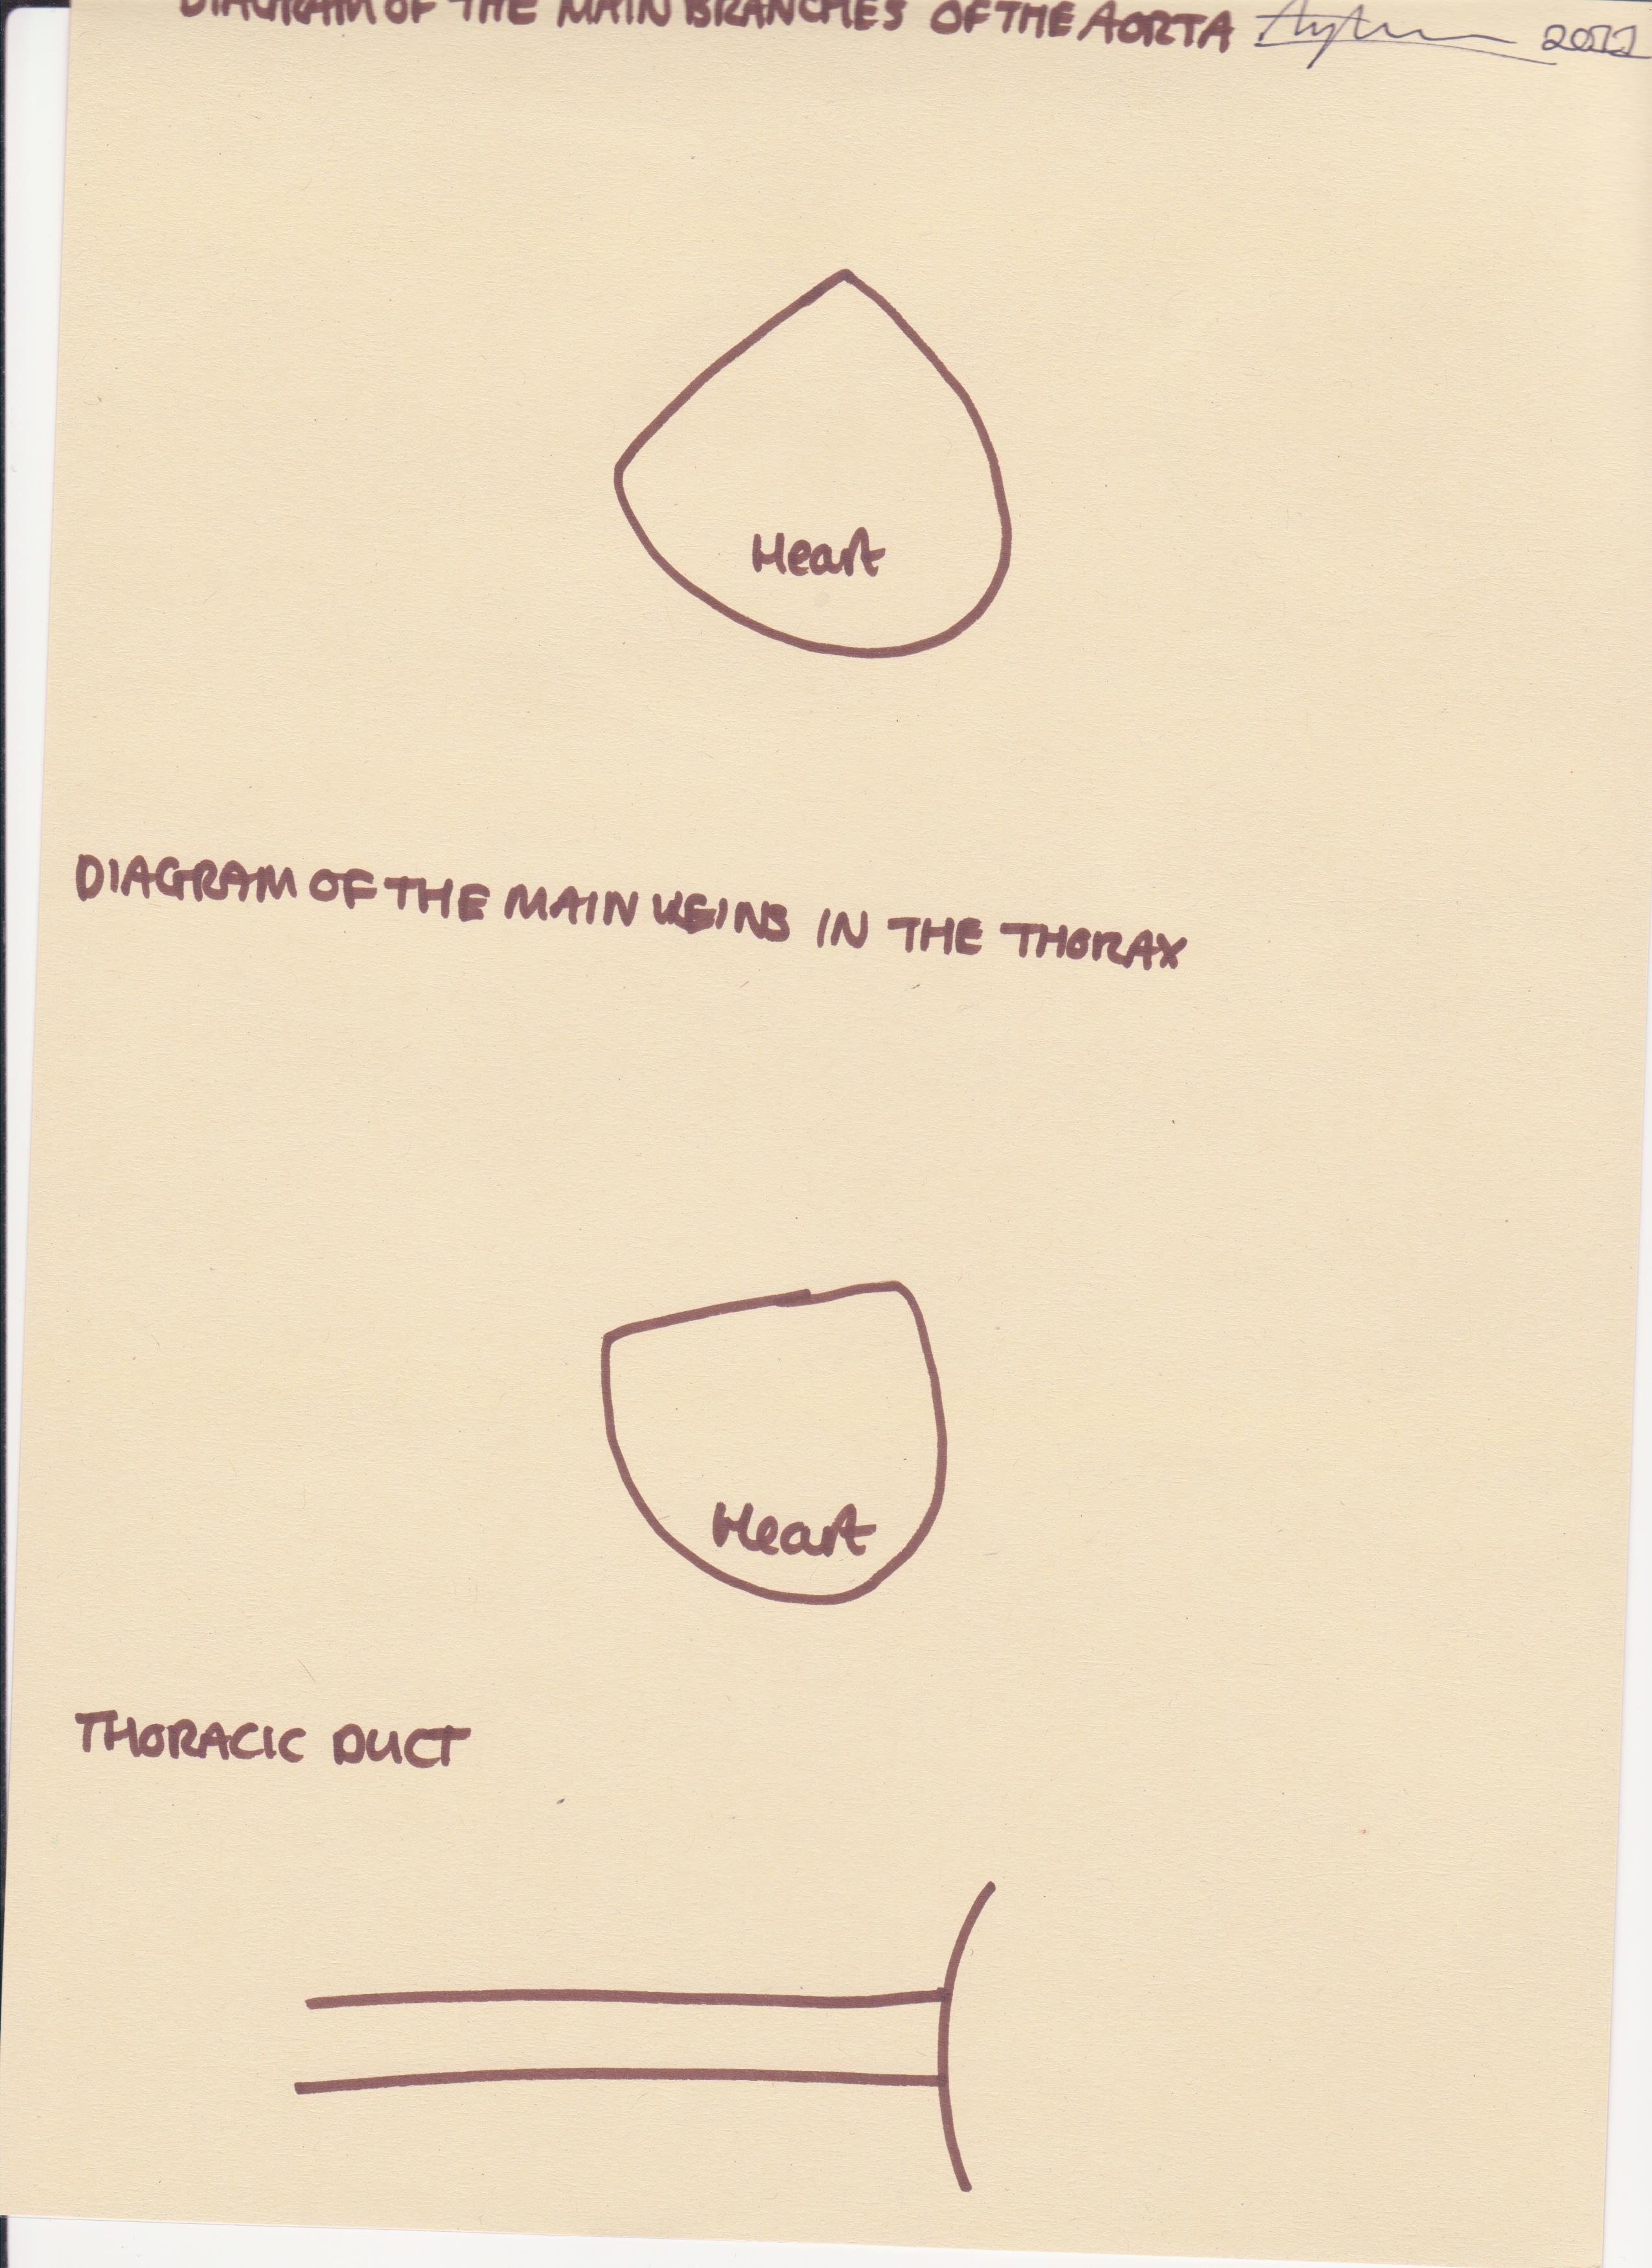 DIAGRAM OF THE MAIN BRANCHES OF THE AORTA
Heart
DIAGRAM OF THE MAIN VEINS IN THE THORAX
Heart
THORACIC DUCT